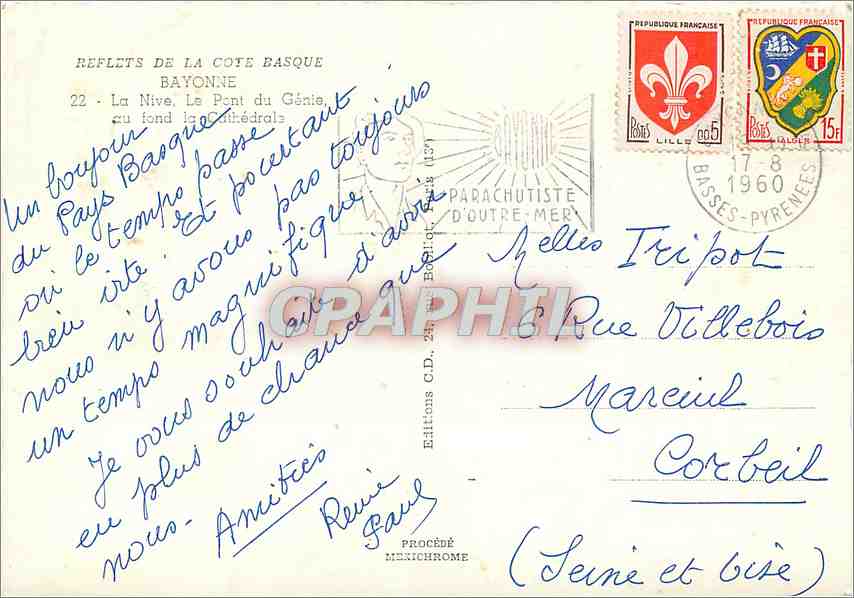 REFLETS DE LA COTE BASQUE
BAYONNE
22 - La Nive, Le Pont du Génie,
au fond la Cathédrale
Un bonjour
du Pays Basque
où le temps passe
bien vite. Et pourtant
nous n'y avons pas toujours
un temps magnifique
Je vous souhaite d'avoir
en plus de chance que
nous. Amitiés
René
Paul
Editions C.D., 24, rue Bouillot, Paris (13e)
PROCÉDÉ
MEXICHROME
BAYONNE
PARACHUTISTE
D'OUTRE-MER
17-8
1960
BASSES-PYRENEES
REPUBLIQUE FRANÇAISE
POSTES
0,05
LILLE
REPUBLIQUE FRANÇAISE
POSTES
15F
ALGER
Melles Tripot
6 Rue Villebois
Mareuil
Corbeil
(Seine et Oise)
CPAPHIL